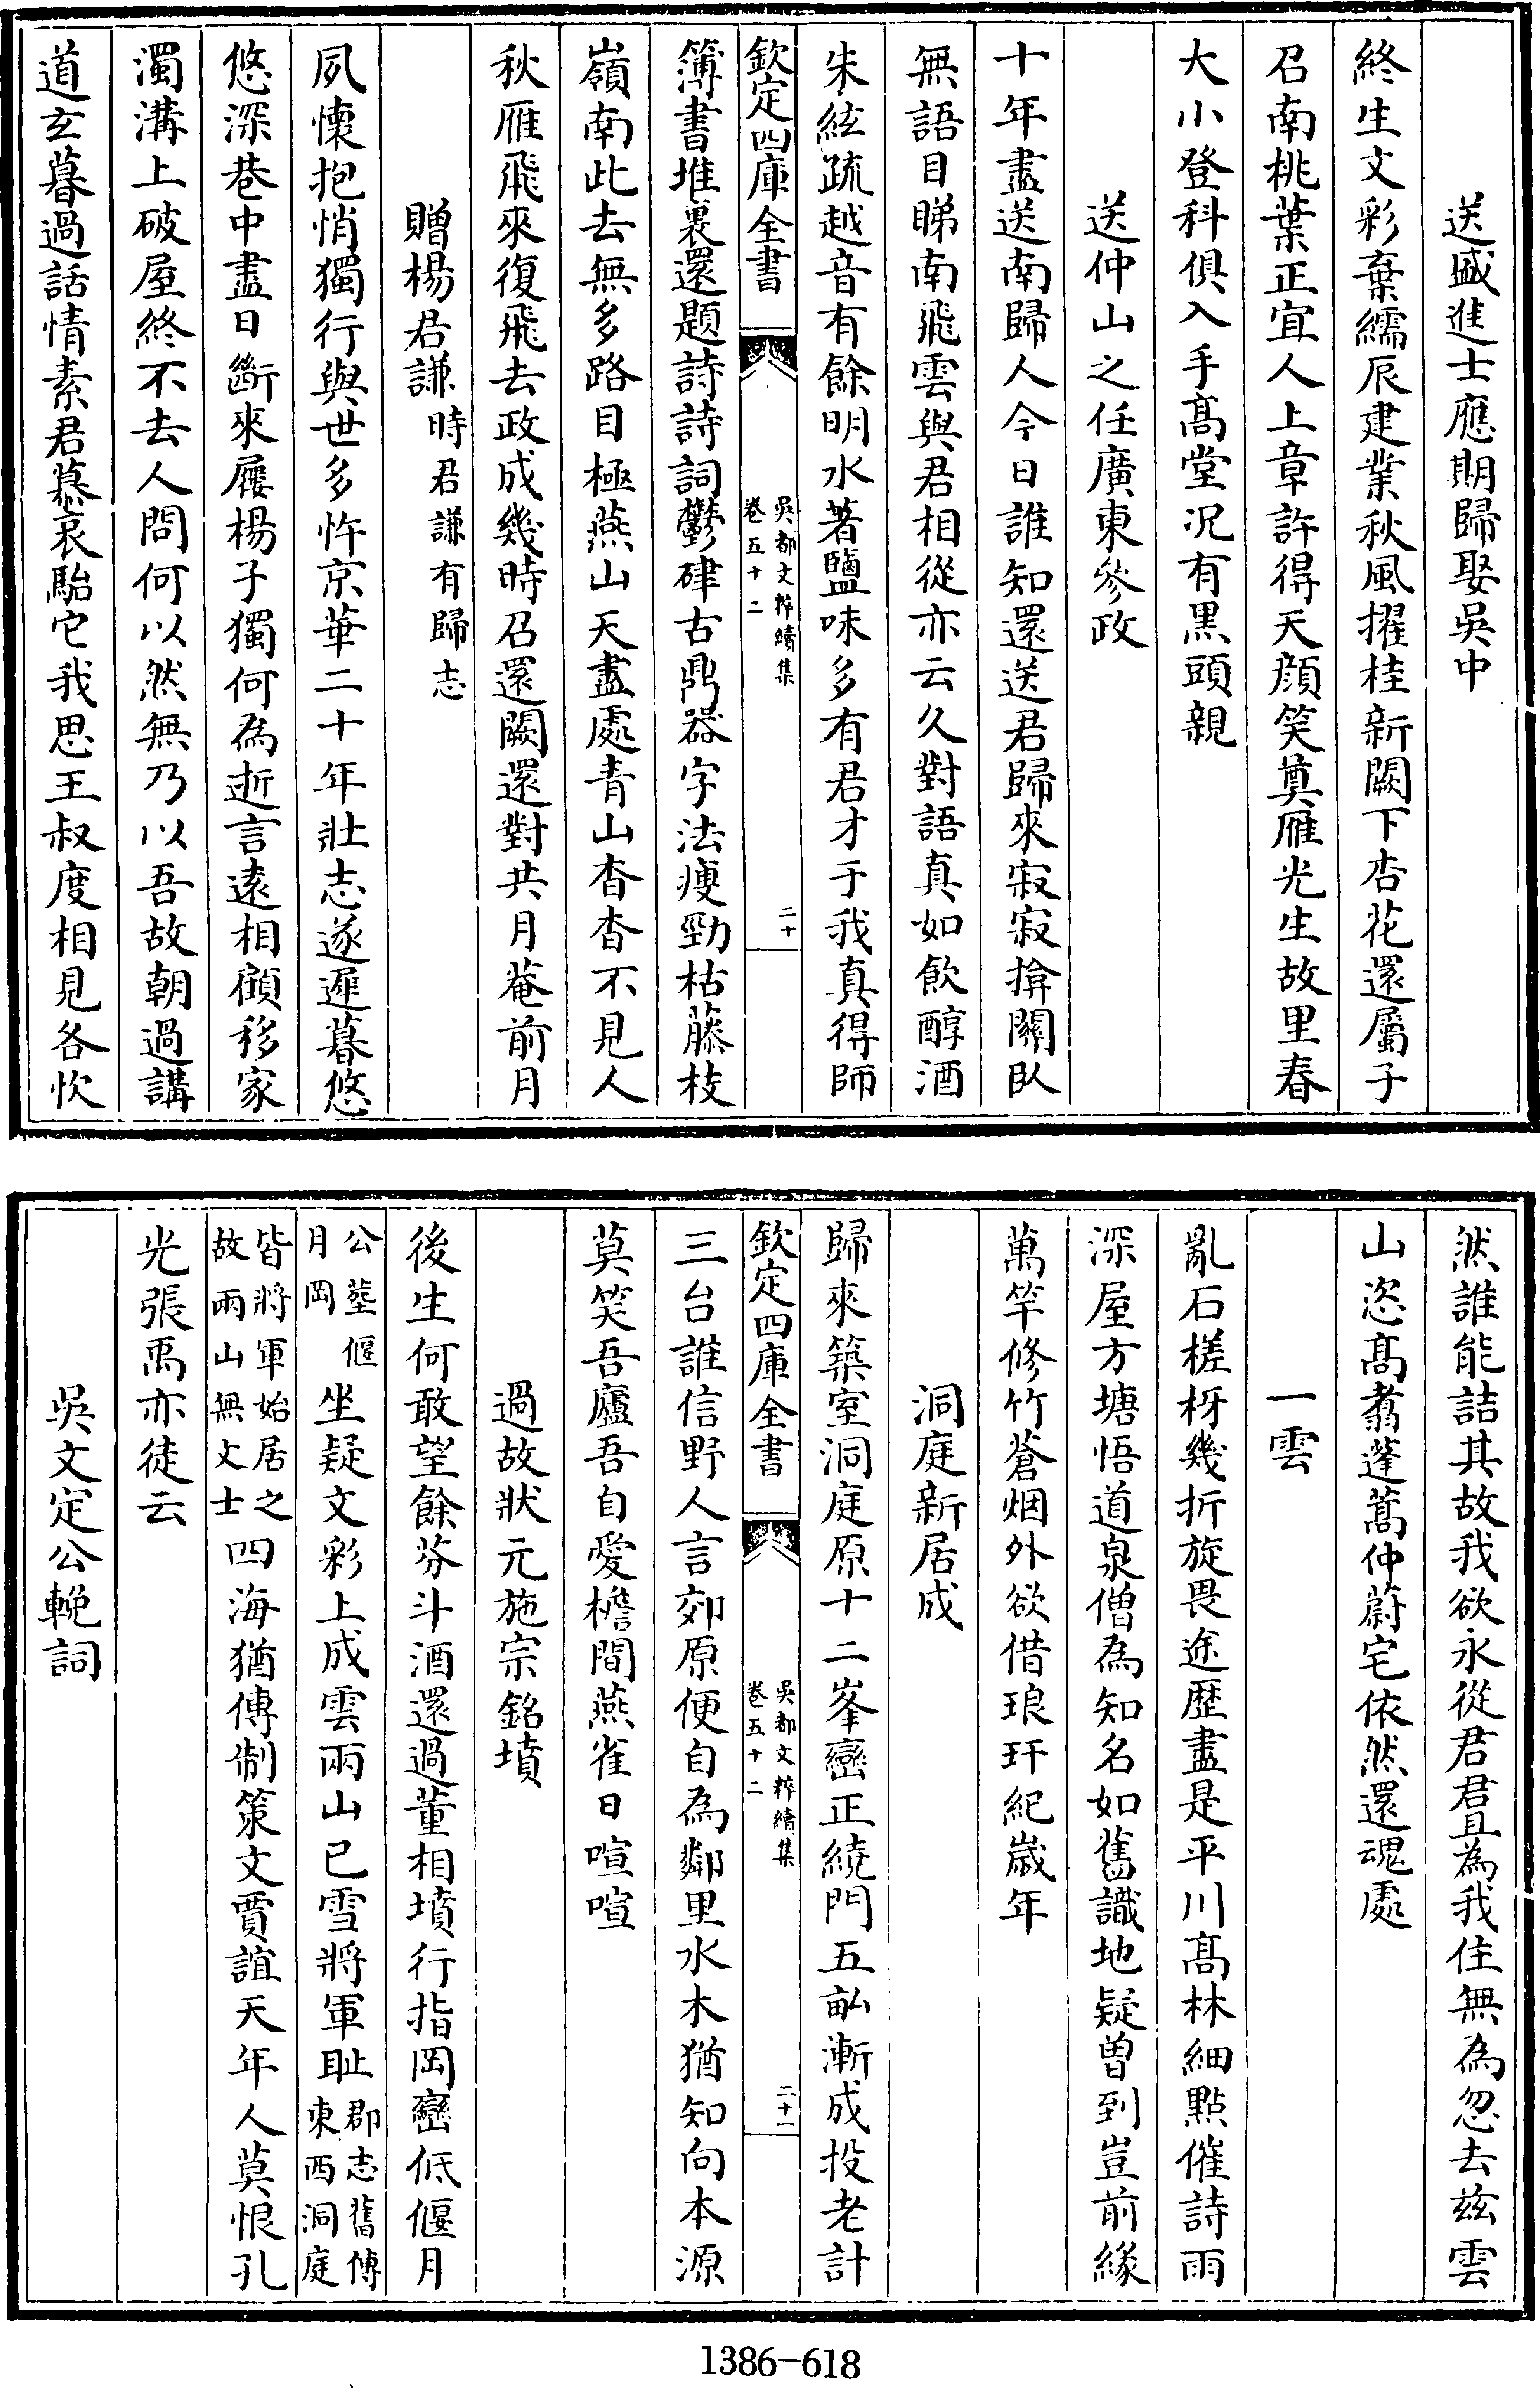 送盛進士應期歸娶吳中
終生文彩棄繻辰建業秋風擢桂新闕下杏花還屬子
召南桃葉正宜人上章許得天顔笑奠雁光生故里春
大小登科俱入手髙堂况有黒頭親
送仲山之任廣東參政
十年盡送南歸人今日誰知還送君歸來寂寂揜關臥
無語目睇南飛雲與君相從亦云久對語真如飲醇酒
朱絃疏越音有餘明水著鹽味多有君才于我真得師
欽定四庫全書
吳都文粹續集
卷五十二
二十
簿書堆裏還題詩詩詞鬱硉古鼎器字法瘦勁枯藤枝
嶺南此去無多路目極燕山天盡處青山杳杳不見人
秋雁飛來復飛去政成幾時召還闕還對共月菴前月
贈楊君謙時君謙有歸志
夙懷抱悄獨行與世多忤京華二十年壯志遂遲暮悠
悠深巷中盡日斷來屨楊子獨何為逝言遠相顧移家
濁溝上破屋終不去人問何以然無乃以吾故朝過講
道玄暮過話情素君慕哀駘它我思王叔度相見各忺
然誰能詰其故我欲永從君君且為我住無為忽去兹雲
山恣髙翥蓬蒿仲蔚宅依然還魂處
一雲
亂石槎枒幾折旋畏途歴盡是平川髙林細點催詩雨
深屋方塘悟道泉僧為知名如舊識地疑曽到豈前緣
萬竿修竹蒼烟外欲借琅玕紀歳年
洞庭新居成
歸來築室洞庭原十二峯巒正繞門五畝漸成投老計
欽定四庫全書
吳都文粹續集
卷五十二
二十一
三台誰信野人言郊原便自為鄰里水木猶知向本源
莫笑吾廬吾自愛檐間燕雀日喧喧
過故狀元施宗銘墳
後生何敢望餘芬斗酒還過董相墳行指岡巒低偃月
公塟偃月岡坐疑文彩上成雲兩山已雪將軍耻郡志舊傳東西洞庭
皆將軍始居之故兩山無文士四海猶傳制策文賈誼天年人莫恨孔
光張禹亦徒云
吳文定公輓詞
1386-618